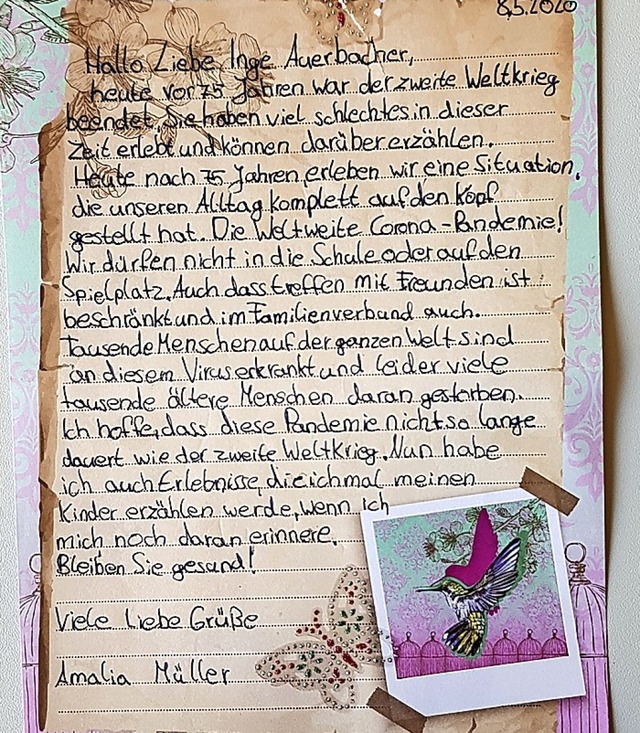 8.5.2020
Hallo Liebe Inge Auerbacher,
heute vor 75 Jahren war der zweite Weltkrieg
beendet. Sie haben viel schlechtes in dieser
Zeit erlebt und können darüber erzählen.
Heute nach 75 Jahren erleben wir eine Situation,
die unseren Alltag komplett auf den Kopf
gestellt hat. Die Weltweite Corona-Pandemie!
Wir dürfen nicht in die Schule oder auf den
Spielplatz. Auch dass treffen mit Freunden ist
beschränkt und im Familienverbund auch.
Tausende Menschen auf der ganzen Welt sind
an diesem Virus erkrankt und leider viele
tausende ältere Menschen daran gestorben.
Ich hoffe, dass diese Pandemie nicht so lange
dauert wie der zweite Weltkrieg. Nun habe
ich auch Erlebnisse, die ich mal meinen
Kinder erzählen werde, wenn ich
mich noch daran erinnere.
Bleiben Sie gesund!
Viele Liebe Grüße
Amalia Müller